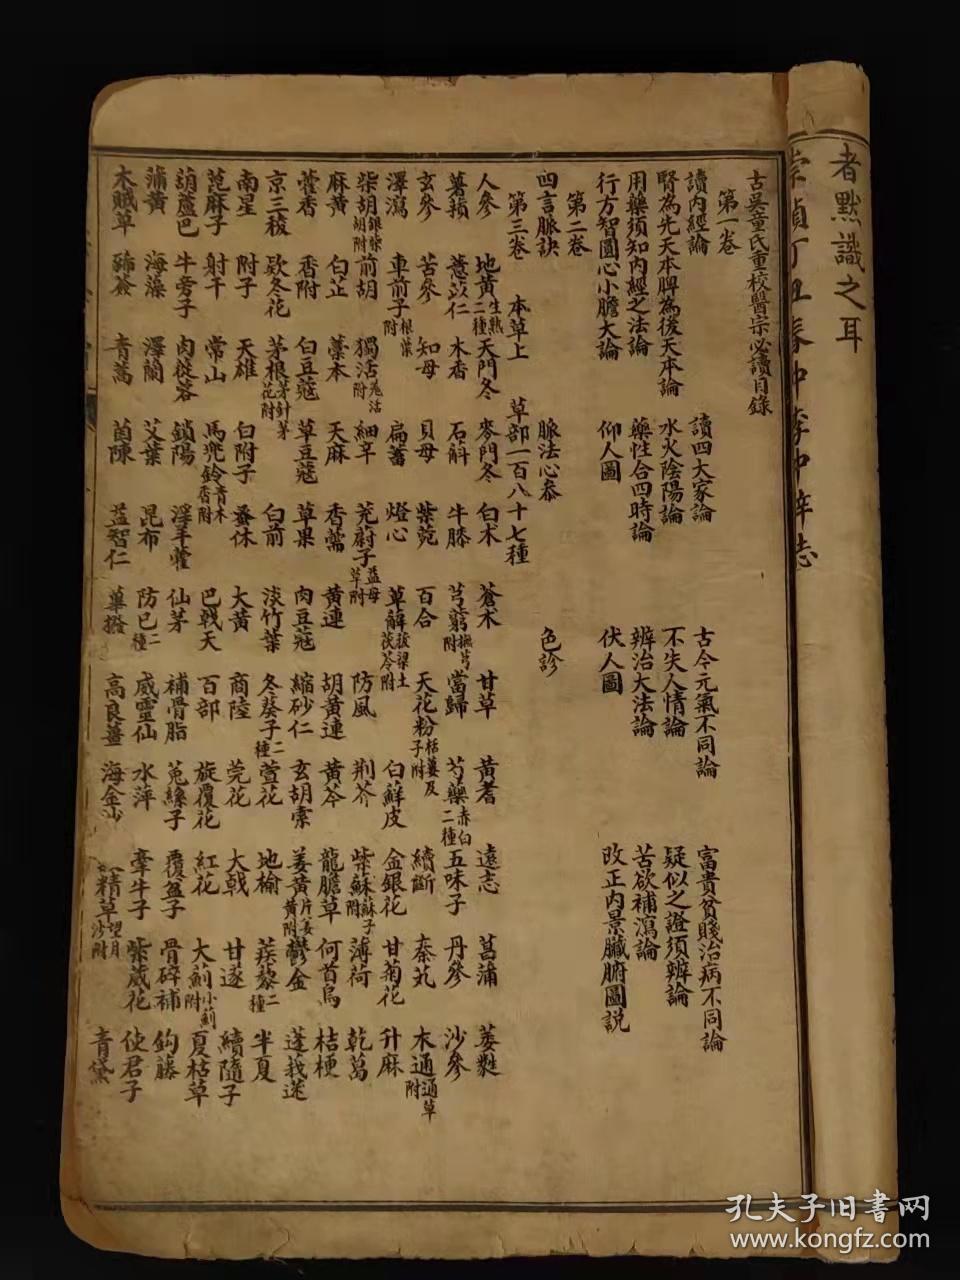 者默識之耳
崇禎丁丑春仲李中梓志
古吳童氏重校醫宗必讀目錄
第一卷
讀內經論 讀四大家論 古今元氣不同論 富貴貧賤治病不同論
腎為先天本脾為後天本論 水火陰陽論 不失人情論 疑似之證須辨論
用藥須知內經之法論 藥性合四時論 辨治大法論 苦欲補瀉論
行方智圓心小膽大論 仰人圖 伏人圖 改正內景臟腑圖說
第二卷
四言脈訣 脈法心參 色診
第三卷 本草上 草部一百八十七種
人參 地黃生熟二種 天門冬 麥門冬 白朮 蒼朮 甘草 黃耆 遠志 菖蒲 萎蕤
薯蕷 薏苡仁 木香 石斛 牛膝 芎藭撫芎附 當歸 芍藥赤白二種 五味子 丹參 沙參
玄參 苦參 知母 貝母 紫菀 百合 天花粉栝蔞及子附 續斷 秦艽 木通通草附
澤瀉 車前子根葉附 扁蓄 燈心 萆薢菝葜土茯苓附 白蘚皮 金銀花 甘菊花 升麻
柴胡銀柴胡附 前胡 獨活羌活附 細辛 茺蔚子益母草附 防風 荊芥 紫蘇蘇子附 薄荷 乾葛
麻黃 白芷 藁本 天麻 香薷 黃連 胡黃連 黃芩 龍膽草 何首烏 桔梗
藿香 香附 白豆蔻 草豆蔻 草果 肉豆蔻 縮砂仁 玄胡索 姜黃片姜黃附 鬱金 蓬莪蒁
京三稜 欵冬花 茅根茅針茅花附 白前 淡竹葉 冬葵子 萱花 地榆 蒺藜二種 半夏
南星 附子 天雄 白附子 蚤休 大黃 商陸 芫花 大戟 甘遂 續隨子
萆麻子 射干 常山 馬兜鈴青木香附 巴戟天 百部 旋覆花 紅花 大薊小薊附 夏枯草
葫蘆巴 牛旁子 肉從蓉 鎖陽 淫羊藿 仙茅 補骨脂 菟絲子 覆盆子 骨碎補 鈎藤
蒲黃 海藻 澤蘭 艾葉 昆布 防已二種 威靈仙 水萍 牽牛子 紫葳花 使君子
木賊草 豨薟 青蒿 茵陳 益智仁 蓽撥 高良薑 海金沙 精草望月沙附 青黛
孔夫子旧書网
www.kongfz.com